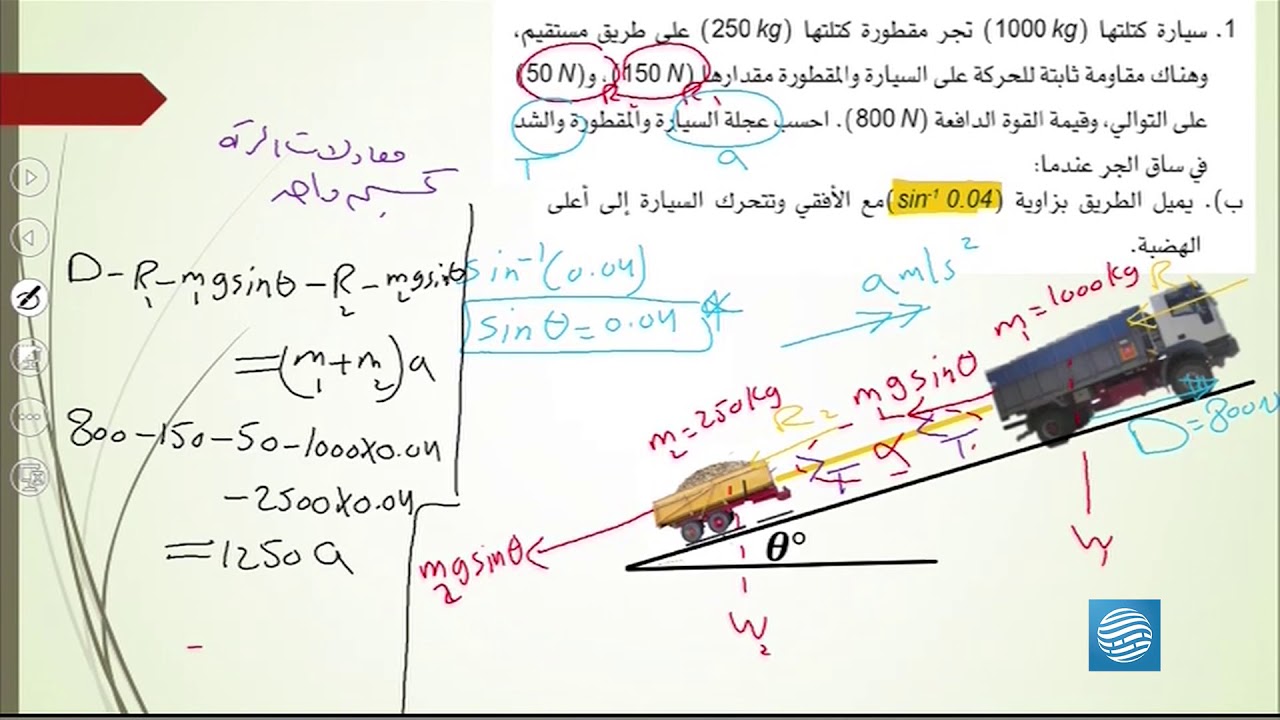 1. سيارة كتلتها (1000 kg) تجر مقطورة كتلتها (250 kg) على طريق مستقيم،
وهناك مقاومة ثابتة للحركة على السيارة والمقطورة مقدارها (150 N)، و(50 N)
على التوالي، وقيمة القوة الدافعة (800 N). احسب عجلة السيارة والمقطورة والشد
في ساق الجر عندما:
ب). يميل الطريق بزاوية (sin⁻¹ 0.04) مع الأفقي وتتحرك السيارة إلى أعلى
الهضبة.
R₂ R₁
T a
معادلات الحركة
كجسم واحد
D - R₁ - m₁gsinθ - R₂ - m₂gsinθ
= (m₁ + m₂)a
800 - 150 - 50 - 1000x0.04
- 2500x0.04
= 1250a
sin⁻¹(0.04)
sin θ = 0.04
a m/s²
m₁ = 1000kg
R₁
m₁gsinθ
m₂ = 250kg
R₂
T
T
D = 800N
W₁
θ°
m₂gsinθ
W₂